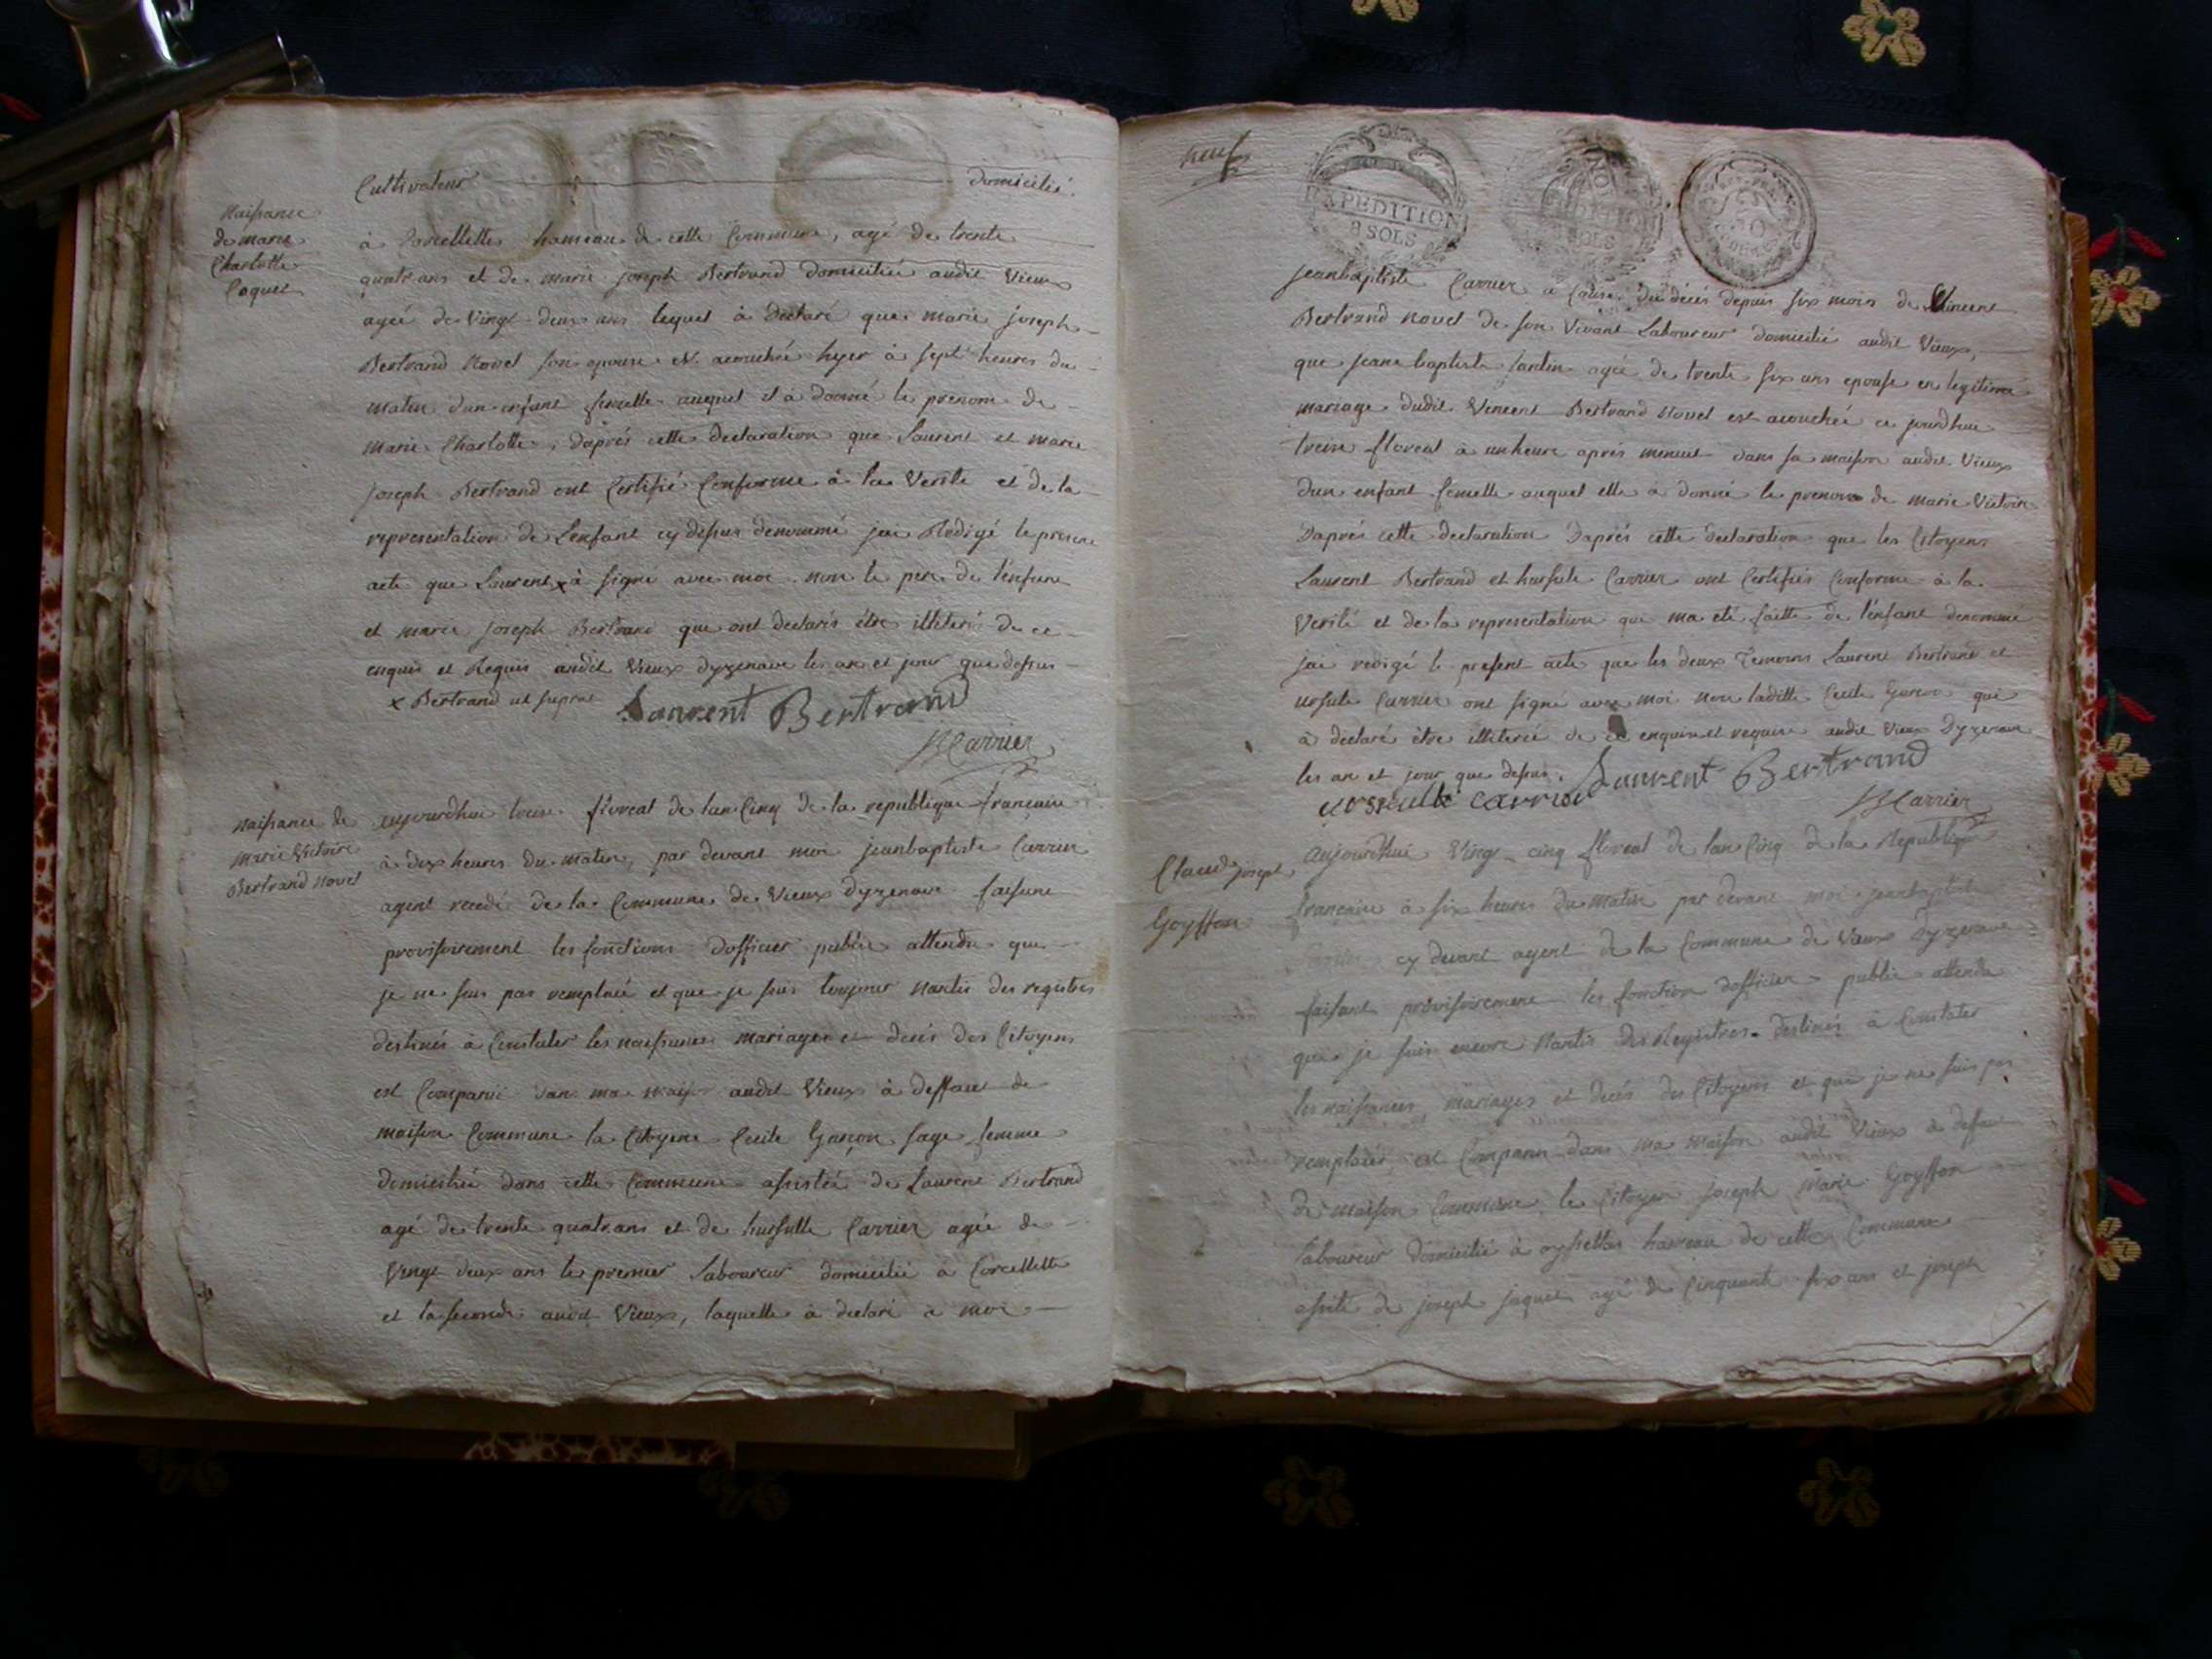 Cultivateur domicilié
Naissance
de marie
Charlotte
Coquet
à Corcellette hameau de cette Commune, agé de trente
quatre ans et de marie joseph Bertrand domiciliée audit Vieux
agée de Vingt deux ans lequel à declaré que marie joseph
Bertrand Novel son epouse est acouchée hyer à sept heures du
matin d'un enfant femelle auquel il à donné le prenom de
marie Charlotte, d'aprés cette declaration que Laurent et marie
joseph Bertrand ont Certifié Conforme à la Verité et de la
representation de L'enfant cy dessus denommé jai Redigé le present
acte que Laurent x à signé avec moi non le pere de l'enfant
et marie joseph Bertrand que ont declarés être illiterés de ce
enquis et Requis audit Vieux dyzenave les an et jour que dessus
x Bertrand ut supra Laurent Bertrand
Carrier
Naissance de
Marie Victoire
Bertrand Novel
aujourdhui treise floreal de lan Cinq de la republique francaise
à dix heures du matin, par devant moi jeanbaptiste Carrier
agent de la Commune de Vieux dyzenave faisant
provisoirement les fonctions dofficier public attendu que
je ne suis pas remplacé et que je suis toujours Nantis des registres
destinés à Constater les naissances mariages et decés des Citoyens
est Comparue dans ma maison audit Vieux à deffaut de
maison Commune la Citoyene Cecile Garçon sage femme
domiciliée dans cette Commune assistée de Laurent Bertrand
agé de trente quatre ans et de hursulle Carrier agée de
Vingt deux ans le premier Laboureur domicilié à Corcellette
et la seconde audit Vieux, laquelle à declaré à moi
neuf
EXPEDITION
8 SOLS
jeanbaptiste Carrier a Cause du décés depuis six mois de Vincent
Bertrand Novel de son Vivant Laboureur domicilié audit Vieux,
que jeane baptiste Tantin agée de trente six ans epouse en legitime
mariage dudit Vincent Bertrand Novel est acouchée ce jourdhui
treise floreal à un heure aprés minuit dans sa maison audit Vieux
d'un enfant femelle auquel elle à donné le prenom de marie Victoire
D'aprés cette declaration D'aprés cette declaration que les Citoyens
Laurent Bertrand et hursule Carrier ont Certifiés Conforme à la
Verité et de la representation qui ma été faitte de l'enfant denommé
jai redigé le present acte que les deux Temoins Laurent Bertrand et
ursule Carrier ont signé avec moi non laditte Cecile Garcon qui
à declaré être illiterée de ce enquise et requise audit Vieux Dyzenave
les an et jour que dessus. Laurent Bertrand
ursulle carrier
Carrier
Claud joseph
Goyffon
aujourdhui Vingt cinq floreal de lan Cinq de la Republique
francaise à six heures du matin par devant moi jeanbaptiste
Carrier cy devant agent de la Commune de Vieux Dyzenave
faisant provisoirement les fonction dofficier public attendu
que je suis encore Nantis des Registres destinés à Constater
les naissances, mariages et decés des Citoyens et que je ne suis pas
remplacés est Comparu dans ma maison audit Vieux à deffaut
de maison Commune le Citoyen joseph Marie Goyffon
laboureur domicilié à hameau de cette Commune
assité de joseph jaquet agé de Cinquante six ans et joseph